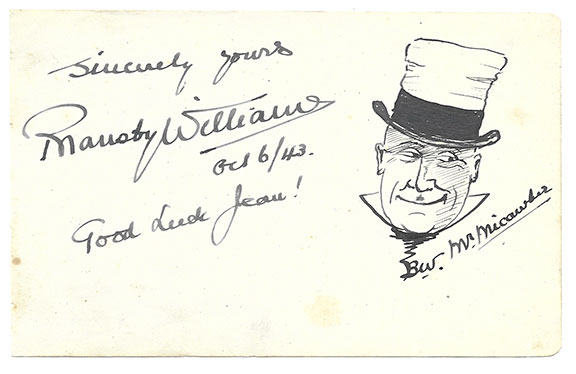 Sincerely yours
Bransby Williams
Oct 6/43.
Good Luck Jean!
B.W. Mr Micawber